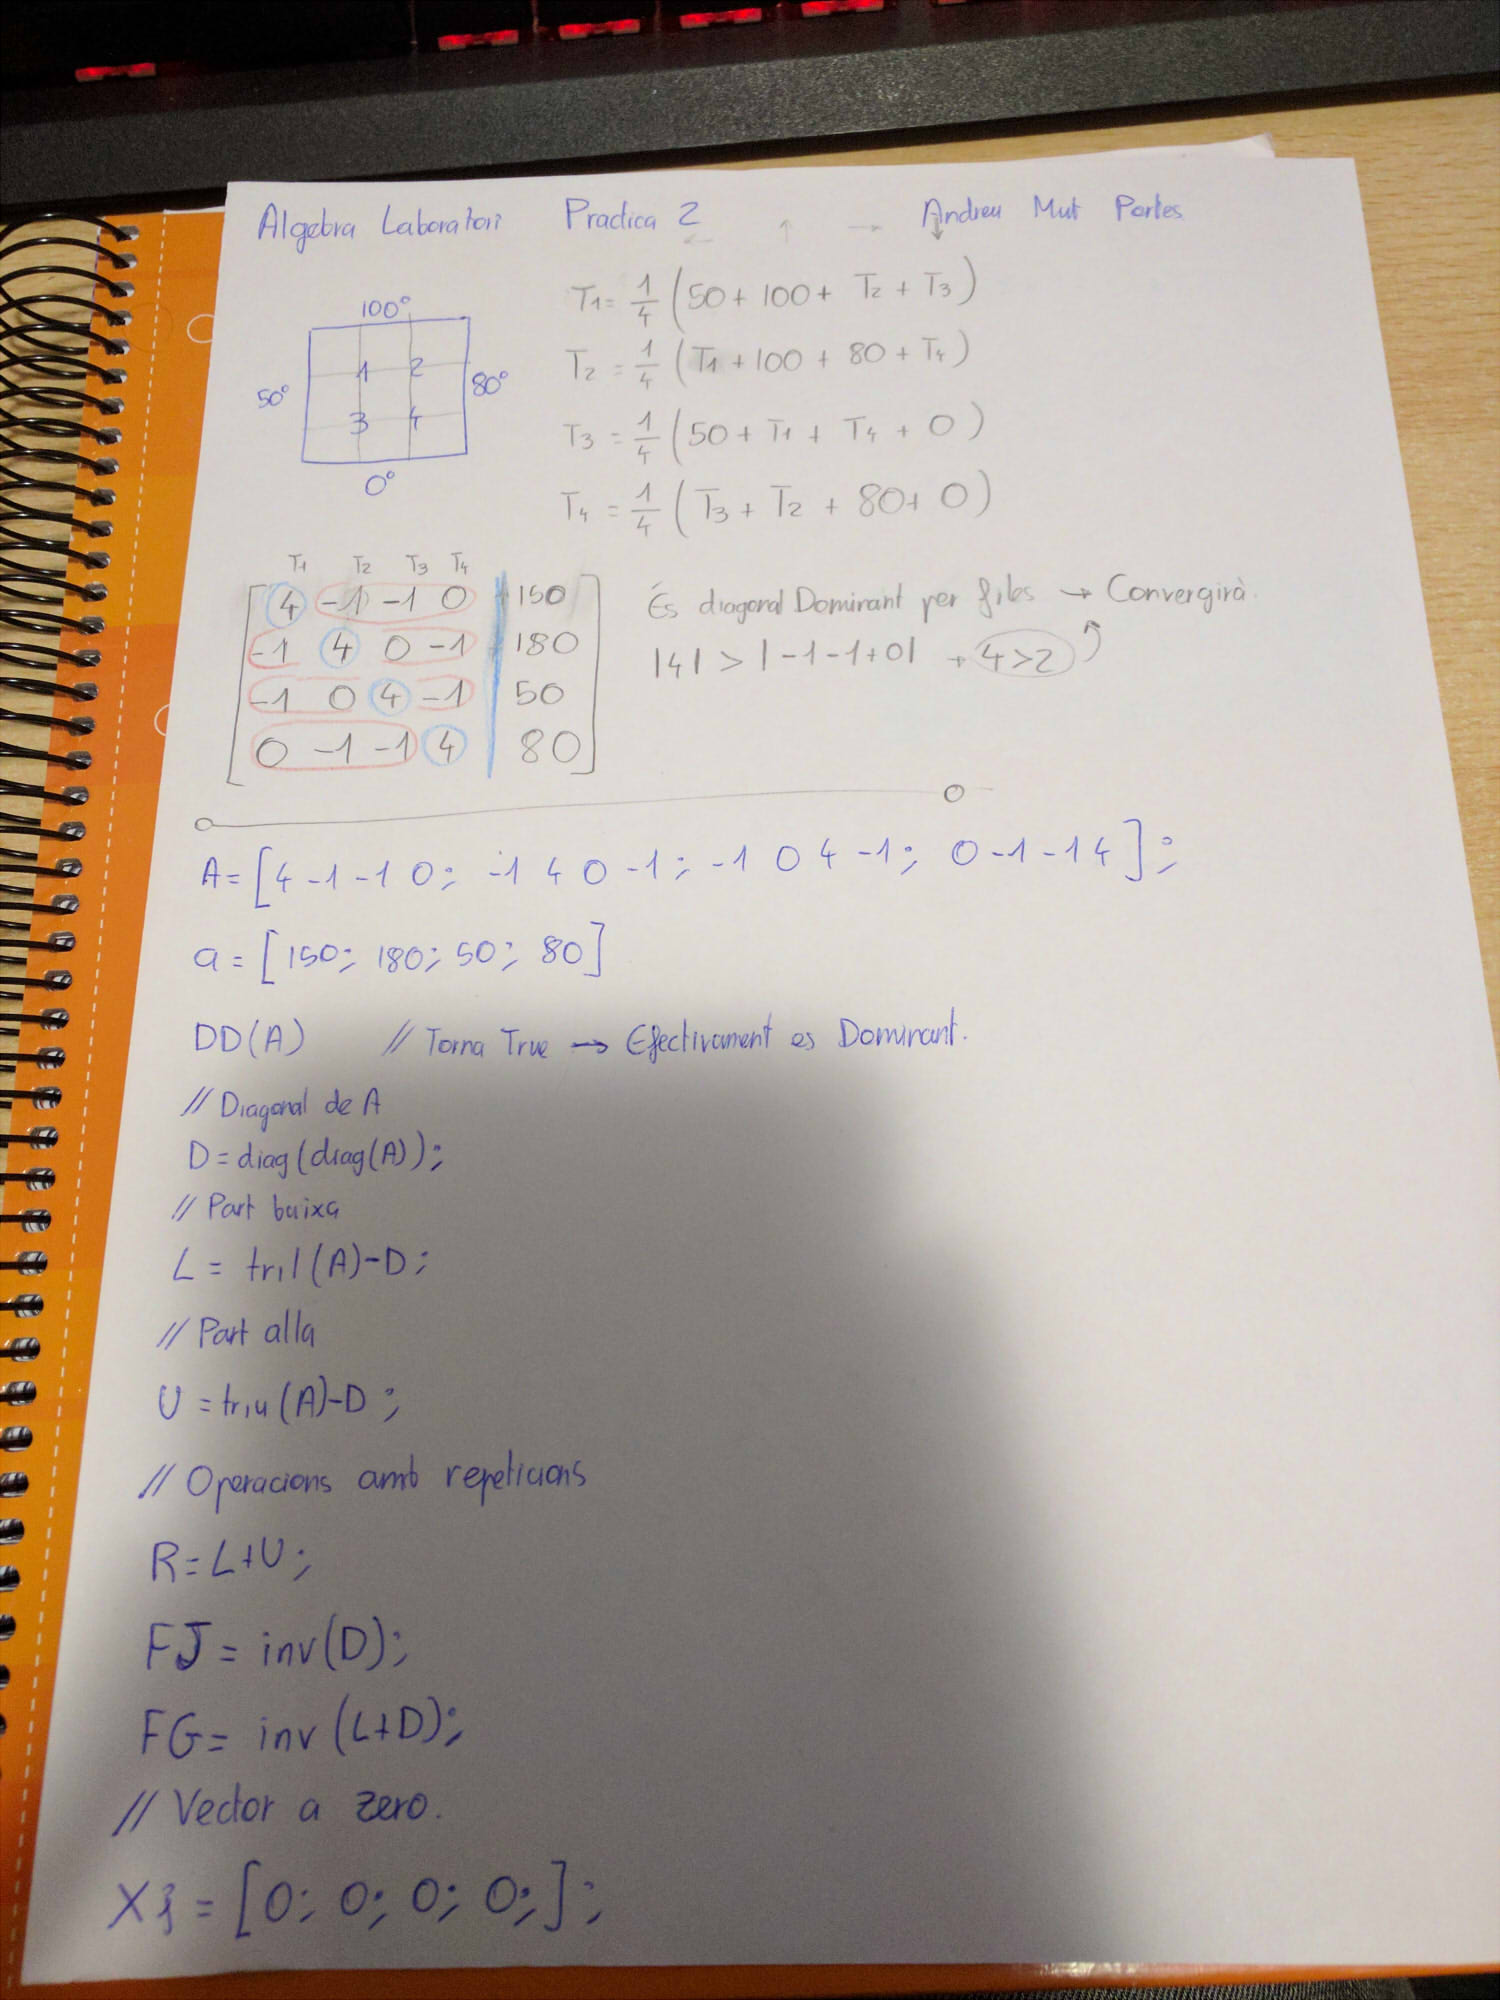 Algebra Laboratori Practica 2 Andreu Mut Portes
← ↑ → ↓
100°
50° 1 2 80°
3 4
0°
T1 = 1/4 (50 + 100 + T2 + T3)
T2 = 1/4 (T1 + 100 + 80 + T4)
T3 = 1/4 (50 + T1 + T4 + 0)
T4 = 1/4 (T3 + T2 + 80 + 0)
T1 T2 T3 T4
4 -1 -1 0 | 150
-1 4 0 -1 | 180
-1 0 4 -1 | 50
0 -1 -1 4 | 80
És diagonal Dominant per files → Convergirà.
|4| > |-1-1+0| → 4>2
A = [4 -1 -1 0; -1 4 0 -1; -1 0 4 -1; 0 -1 -1 4];
a = [150; 180; 50; 80]
DD(A) // Torna True → Efectivament es Dominant.
// Diagonal de A
D = diag(diag(A));
// Part baixa
L = tril(A)-D;
// Part alla
U = triu(A)-D;
// Operacions amb repeticions
R = L+U;
FJ = inv(D);
FG = inv(L+D);
// Vector a zero.
= [0; 0; 0; 0;];